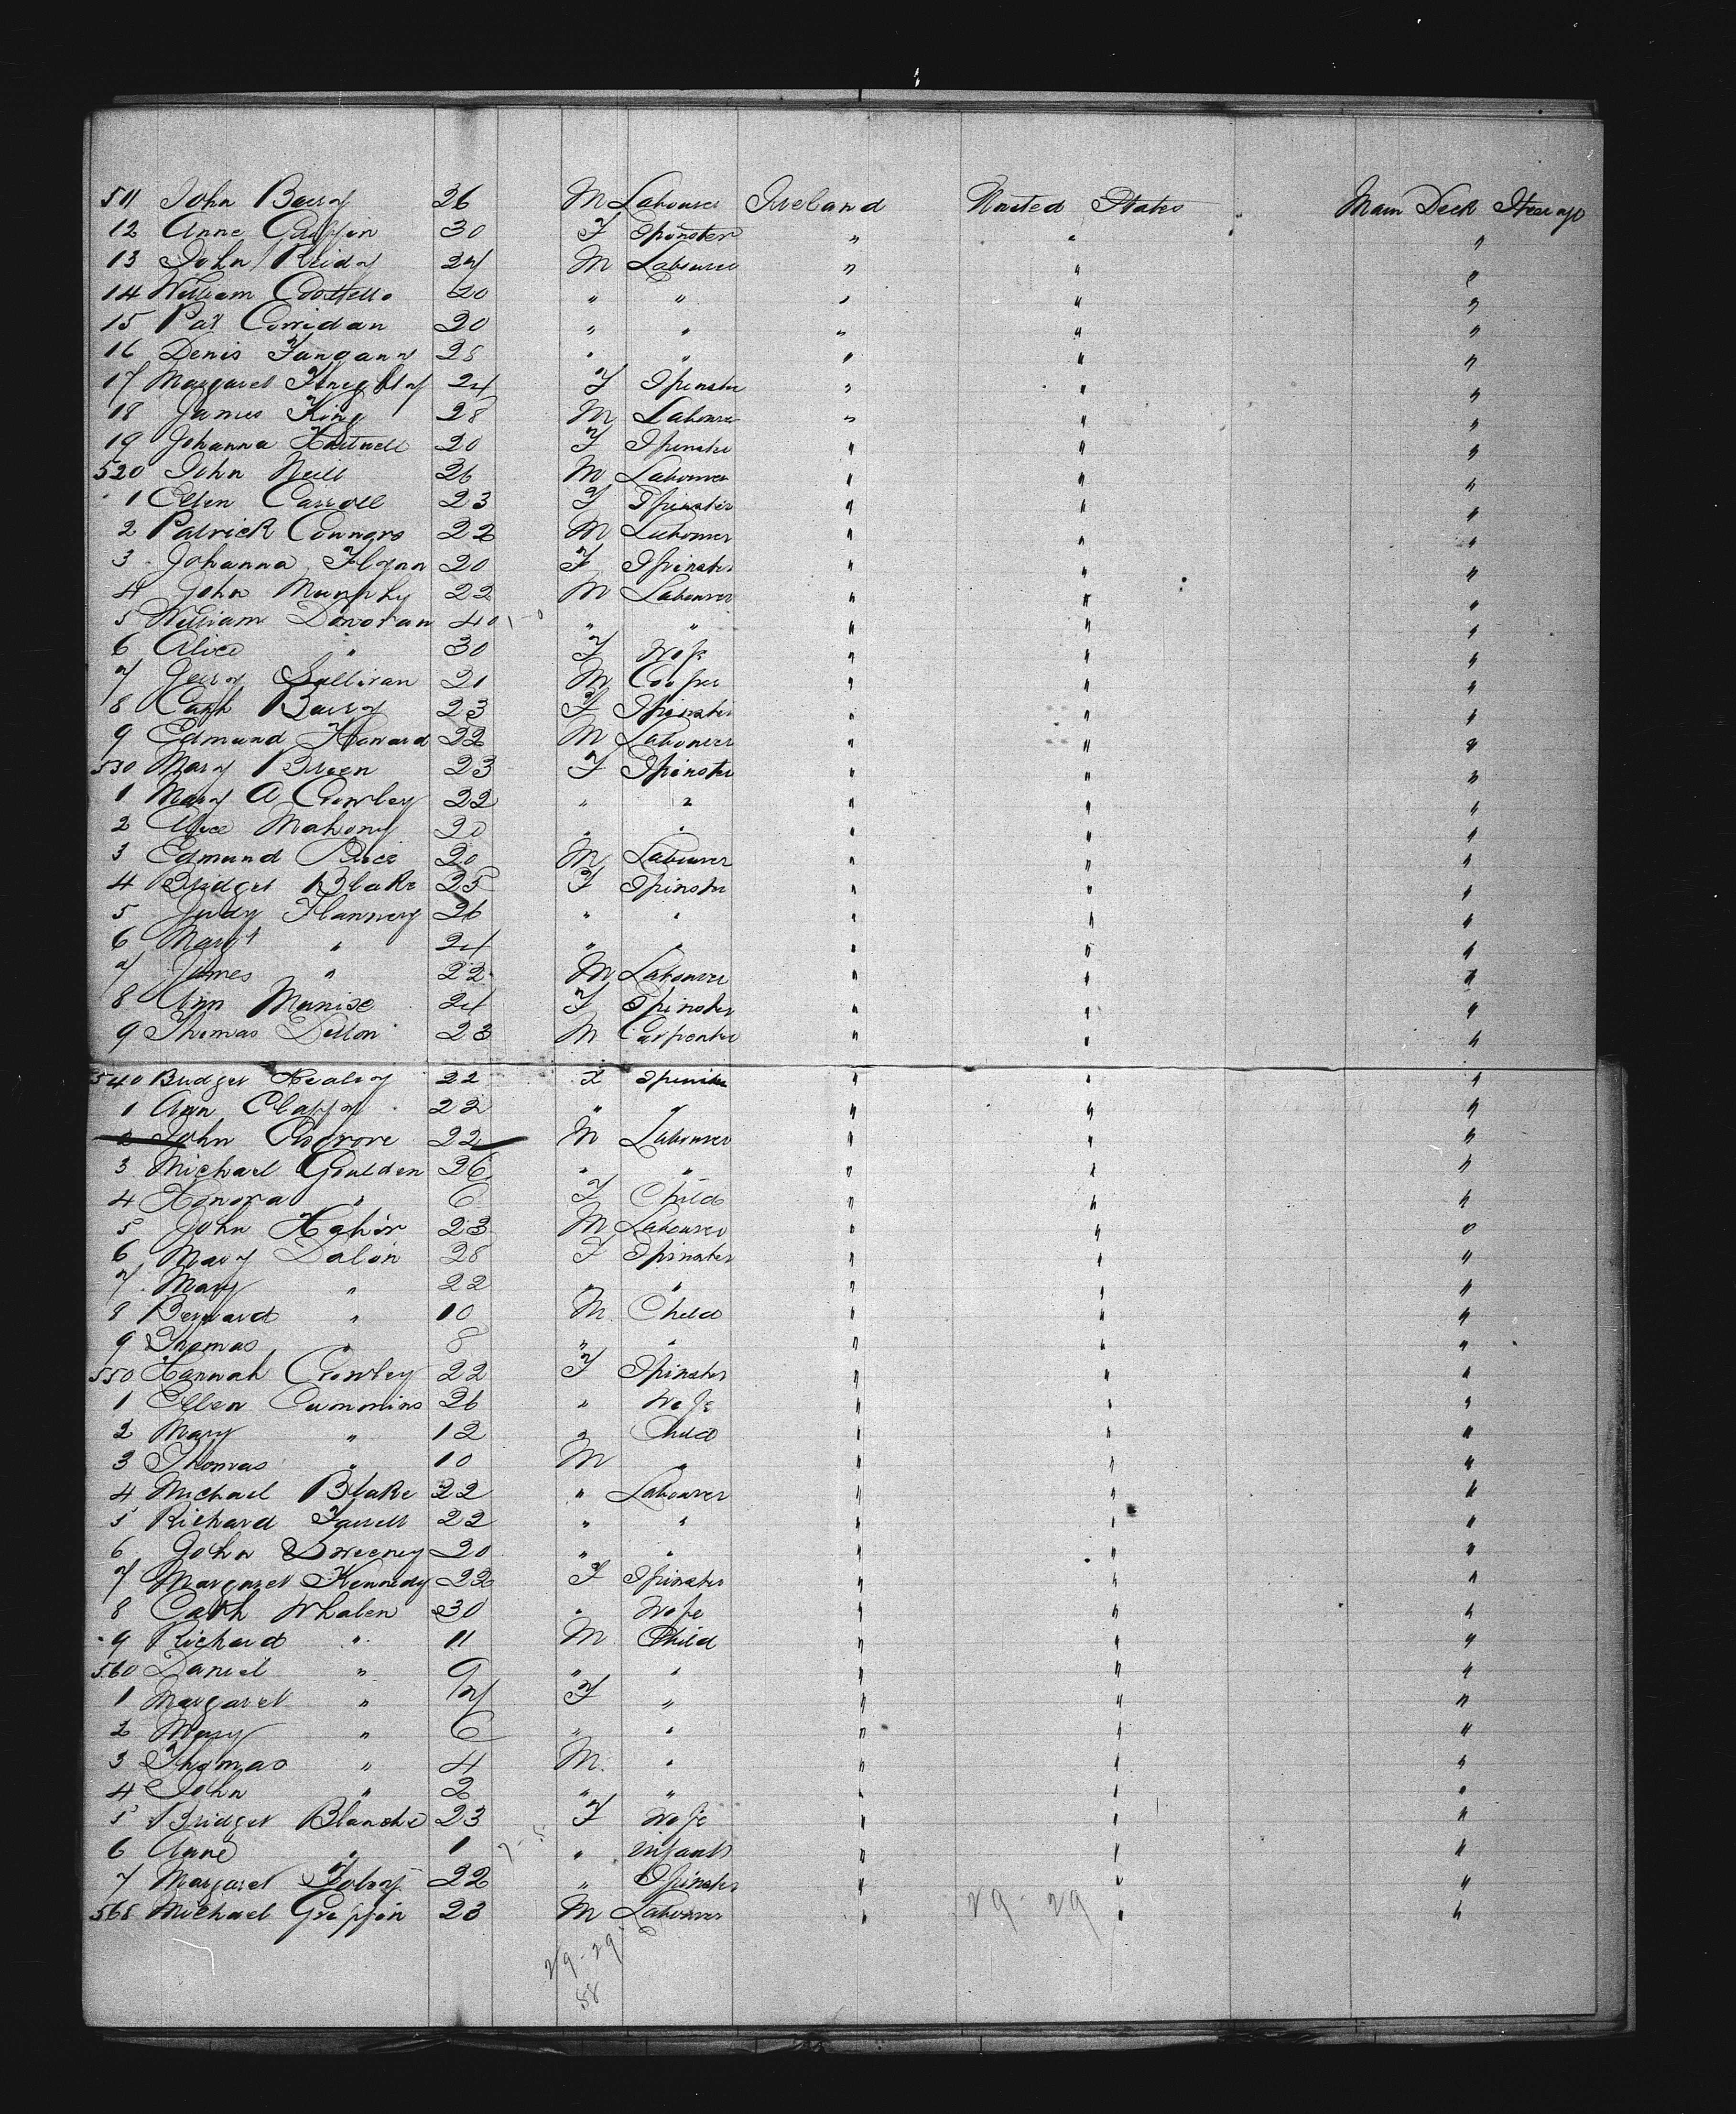 511 John Barry 26 M Labourer Ireland United States Main Deck Steerage
12 Anne 30 F Spinster " " "
13 John Reidy 27 M Labourer " " "
14 William Costello 20 " " " " "
15 Pat Corridan 20 " " " " "
16 Denis 28 " " " " "
17 Margaret 24 F Spinster " " "
18 James King 28 M Labourer " " "
19 Johanna Hartnell 20 F Spinster " " "
520 John Neill 26 M Labourer " " "
1 Ellen Carroll 23 F Spinster " " "
2 Patrick Connors 22 M Labourer " " "
3 Johanna Flynn 20 F Spinster " " "
4 John Murphy 22 M Labourer " " "
5 William Donovan 40 " " " " "
6 Alice " 30 F Wife " " "
7 Jerry Sullivan 21 M Cooper " " "
8 Cath Barry 23 F Spinster " " "
9 Edmund Howard 22 M Labourer " " "
530 Mary Breen 23 F Spinster " " "
1 Mary A Crowley 22 " " " " "
2 Alice Mahony 20 " " " " "
3 Edmund Price 20 M Labourer " " "
4 Bridget Blake 25 F Spinster " " "
5 Judy Flannery 26 " " " " "
6 Margt " 24 " " " " "
7 James " 22 M Labourer " " "
8 Ann 24 F Spinster " " "
9 Thomas Dillon 23 M Carpenter " " "
540 Bridget Healey 22 F Spinster " " "
1 Ann Claffy 22 " " " " "
2 John Cosgrove 22 M Labourer " " "
3 Michael Goulden 26 " " " " "
4 Honora " 6 F Child " " "
5 John 23 M Labourer " " "
6 Mary Dalon 28 F Spinster " " "
7 Mary " 22 " " " " "
8 Bernard " 10 M Child " " "
9 Thomas " 8 " " " " "
550 Hannah Crowley 22 F Spinster " " "
1 Ellen Cummins 26 " Wife " " "
2 Mary " 12 " Child " " "
3 Thomas " 10 M " " " "
4 Michael Blake 22 " Labourer " " "
5 Richard Farrell 22 " " " " "
6 John Sweeney 20 " " " " "
7 Margaret Kennedy 22 F Spinster " " "
8 Cath Whalen 30 " Wife " " "
9 Richard " 11 M Child " " "
560 Daniel " 9 " " " " "
1 Margaret " 7 F " " " "
2 Mary " 6 " " " " "
3 Thomas " 4 M " " " "
4 John " 2 " " " " "
5 Bridget Blanche 23 F Wife " " "
6 Anne " 1 " infant " " "
7 Margaret 22 " Spinster " " "
568 Michael Griffin 23 M Labourer " " "
29 - 29
29 - 29
58